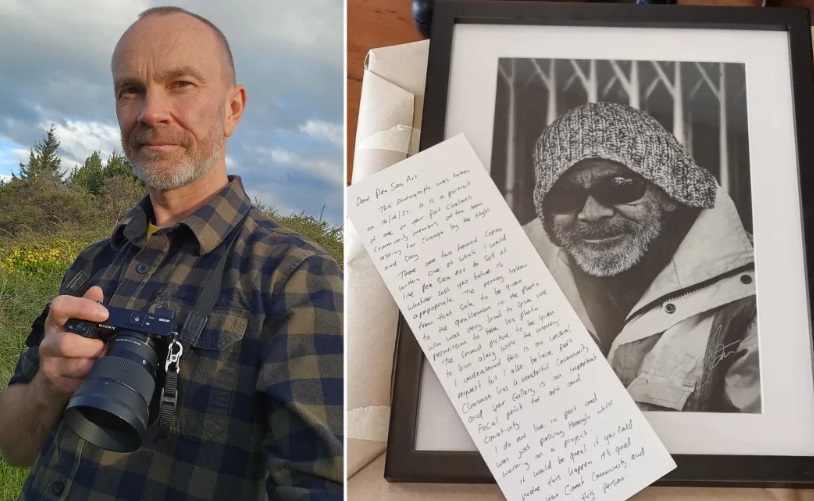 SONY
Dear Pen Sea Art
The photograph was taken
on It is a portrait
of one of your Port Chalmers
Community members at the
asking for change by the Night
and Day
There are two framed copies
within one of which I would
like Pen Sea Art to sell at
whatever cost you believe is
appropriate. The money taken
from that sale to be given
to the gentleman in the photo
who was very kind to give me
permission to take his photo.
The second picture to be given
to him along with the money
I understand this is an unusual
request but I also believe port
Chalmers has a wonderful community
and your Gallery is an important
focal point for art and
creativity
I do not live in port and
was just passing through whilst
working on a project
it would be great if you could
make this happen. It's good
Community and
this person